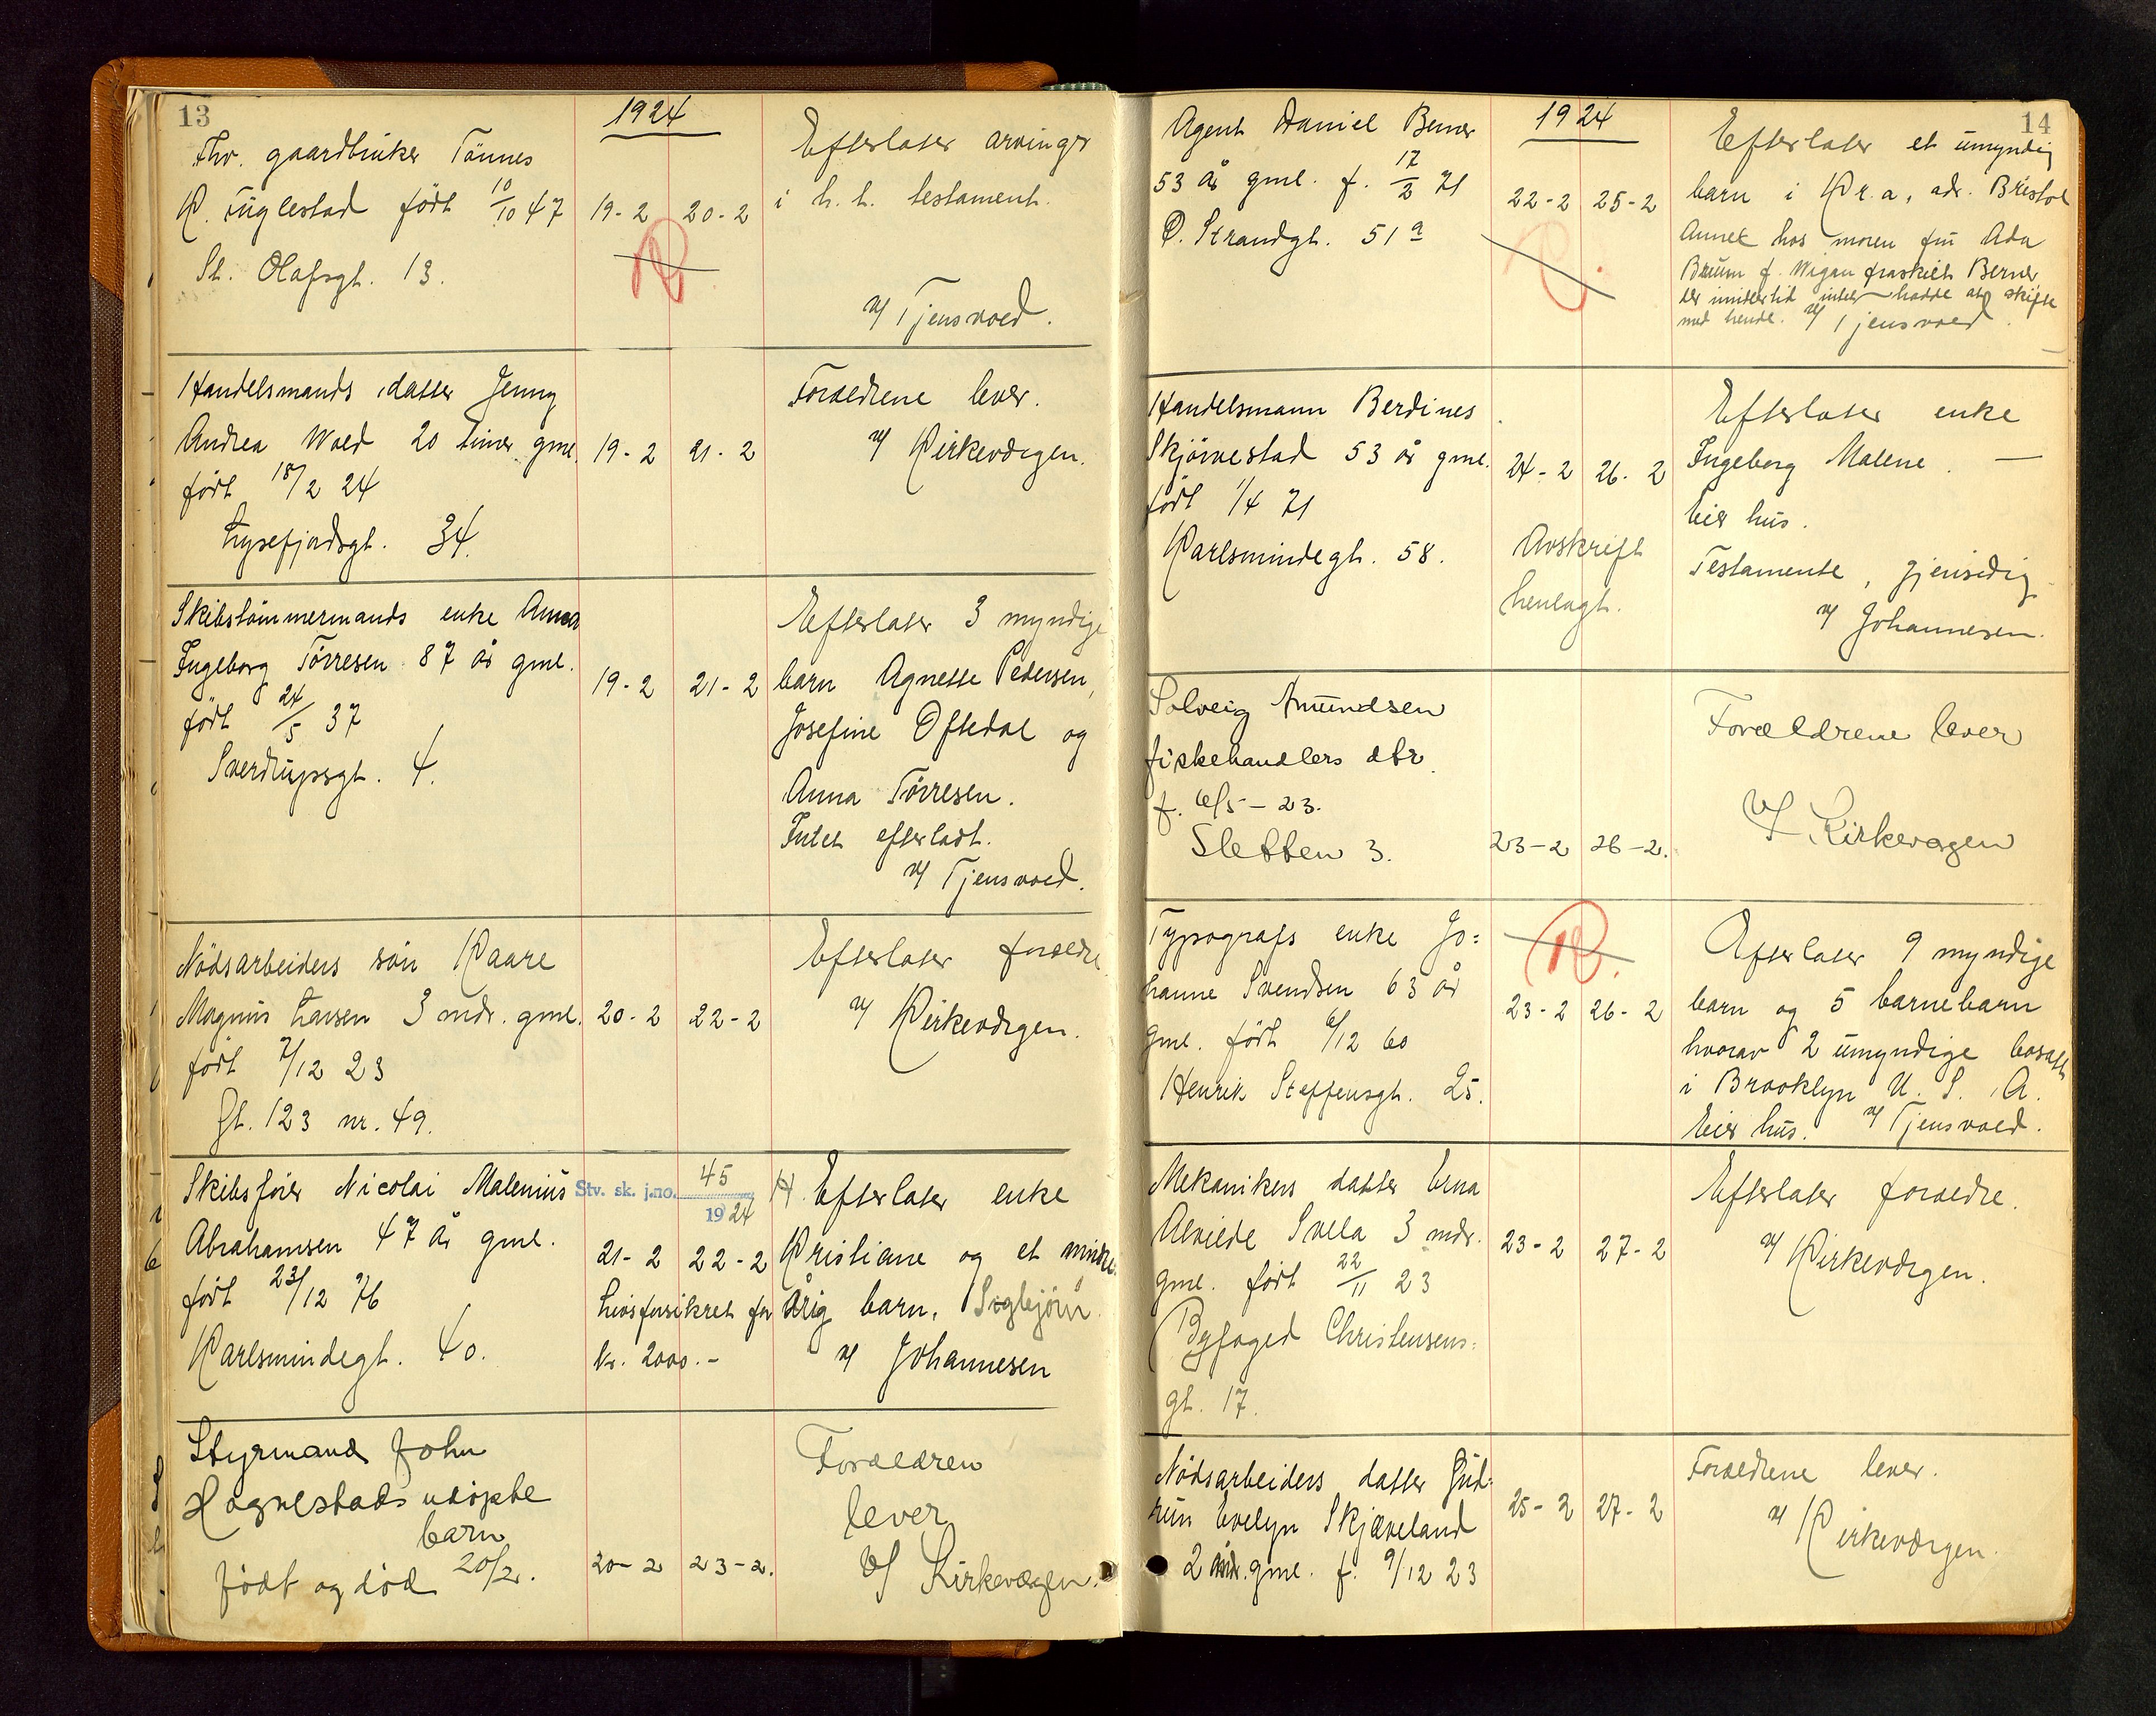 13
1924
Fhv. gaardbruker Tönnes
R. Fuglestad født 10/10 47
St. Olafsgt. 13.
19-2 20-2
Efterlater arvinger
i h. t. testament.
v/ Tjensvold.
Handelsmands datter Jenny
Andrea Wold 20 timer gml.
født 18/2 24
Lysefjordsgt. 34.
19-2 21-2
Foreldrene lever.
v/ Kirkeværgen.
Skibstömmermands enke Anna
Ingeborg Törresen 87 år gml.
født 24/5 37
Sverdrupsgt. 4.
19-2 21-2
Efterlater 3 myndige
barn Agnette Pedersen,
Josefine Oftedal og
Anna Törresen.
Intet efterladt.
v/ Tjensvold.
Nödsarbeiders sön Kaare
Magnus Larsen 3 mdr. gml.
født 7/12 23
Gt. 123 nr. 49.
20-2 22-2
Efterlater foreldre
v/ Kirkeværgen.
Skibsförer Nicolai Malenius
Abrahamsen 47 år gml.
født 23/12 76
Karlsmindegt. 40.
Stv. sk. j.no. 45
1924
21-2 22-2
Livsforsikret for
kr. 2000.-
H. Efterlater enke
Kristiane og et mindre-
årig barn, Sigbjörn.
v/ Johannesen
Styrmand John
Hognestads udöpte
barn
født og död 20/2.
20-2 23-2.
Forældren
lever
v/ Kirkeværgen.
14
1924
Agent Daniel Berner
53 år gml. f. 17/2 71
Ö. Strandgt. 51 a
22-2 25-2
Efterlater et umyndig
barn i Kr.a, adr. Bristol
Annex hos moren fru Ada
Bruun f. Wigan fraskilt Berner
der imidlertid intet hadde at skifte
med hende. v/ Tjensvold.
Handelsmann Berdines
Skjörvestad 53 år gml.
født 1/4 71
Karlsmindegt. 58.
24-2 26-2
Avskrift
henlagt.
Efterlater enke
Ingeborg Malene.
Eier hus.
Testamente, gjensidig
v/ Johannesen.
Solveig Amundsen
fiskehandlers dtr.
f. 6/5-23.
Sletten 3.
23-2 26-2.
Forældrene lever
v/ Kirkevergen
Typografs enke Jo=
hanne Svendsen 63 år
gml. født 6/12 60
Henrik Steffensgt. 25.
23-2 26-2
Efterlater 9 myndige
barn og 5 barnebarn
hvorav 2 umyndige bosatt
i Brooklyn U. S. A.
Eier hus. v/ Tjensvold.
Mekanikers datter Erna
Alvilde Svela 3 mdr.
gml. født 22/11 23
Byfoged Christensens=
gt. 17.
23-2 27-2
Efterlater foreldre.
v/ Kirkeværgen.
Nödsarbeiders datter Gud-
run Evelyn Skjæveland
2 mdr. gml. f. 9/12 23
25-2 27-2
Foreldrene lever.
v/ Kirkeværgen.